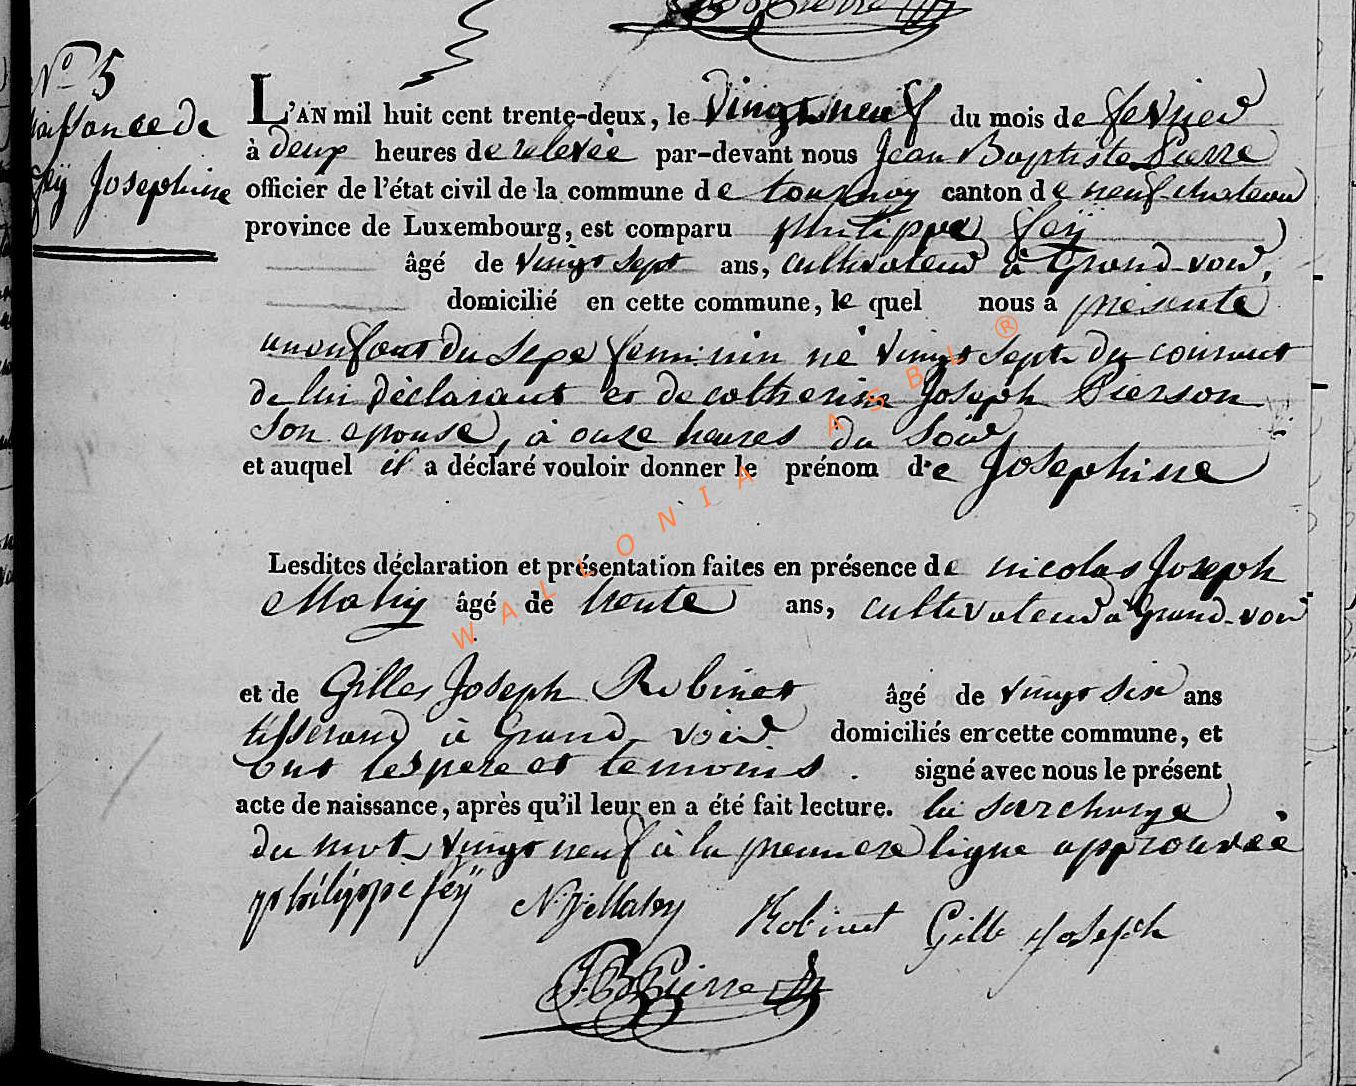 N° 5
naissance de
feÿ Josephine
L'AN mil huit cent trente-deux, le vingt neuf du mois de fevrier
à deux heures de relevée par-devant nous Jean Baptiste Pierre
officier de l'état civil de la commune de tournay canton de neufchateau
province de Luxembourg, est comparu philippe feÿ
âgé de vingt sept ans, cultivateur à Grand-voir,
domicilié en cette commune, le quel nous a présenté
un enfant du sexe feminin né vingt sept du courant
de lui déclarant et de catherine Joseph Pierson
son epouse, à onze heures du soir
et auquel il a déclaré vouloir donner le prénom de Josephine
Lesdites déclaration et présentation faites en présence de nicolas Joseph
Mahy âgé de trente ans, cultivateur à Grand-voir
et de Gilles Joseph Robinet âgé de vingt six ans
tisserand à Grand-voir domiciliés en cette commune, et
ont les pere et temoins signé avec nous le présent
acte de naissance, après qu'il leur en a été fait lecture. la surcharge
du mot vingt neuf à la premiere ligne approuvée
philippe feÿ N. J. Mahy Robinet Gille joseph
J. B. Pierre
WALLONIA ASBL ®